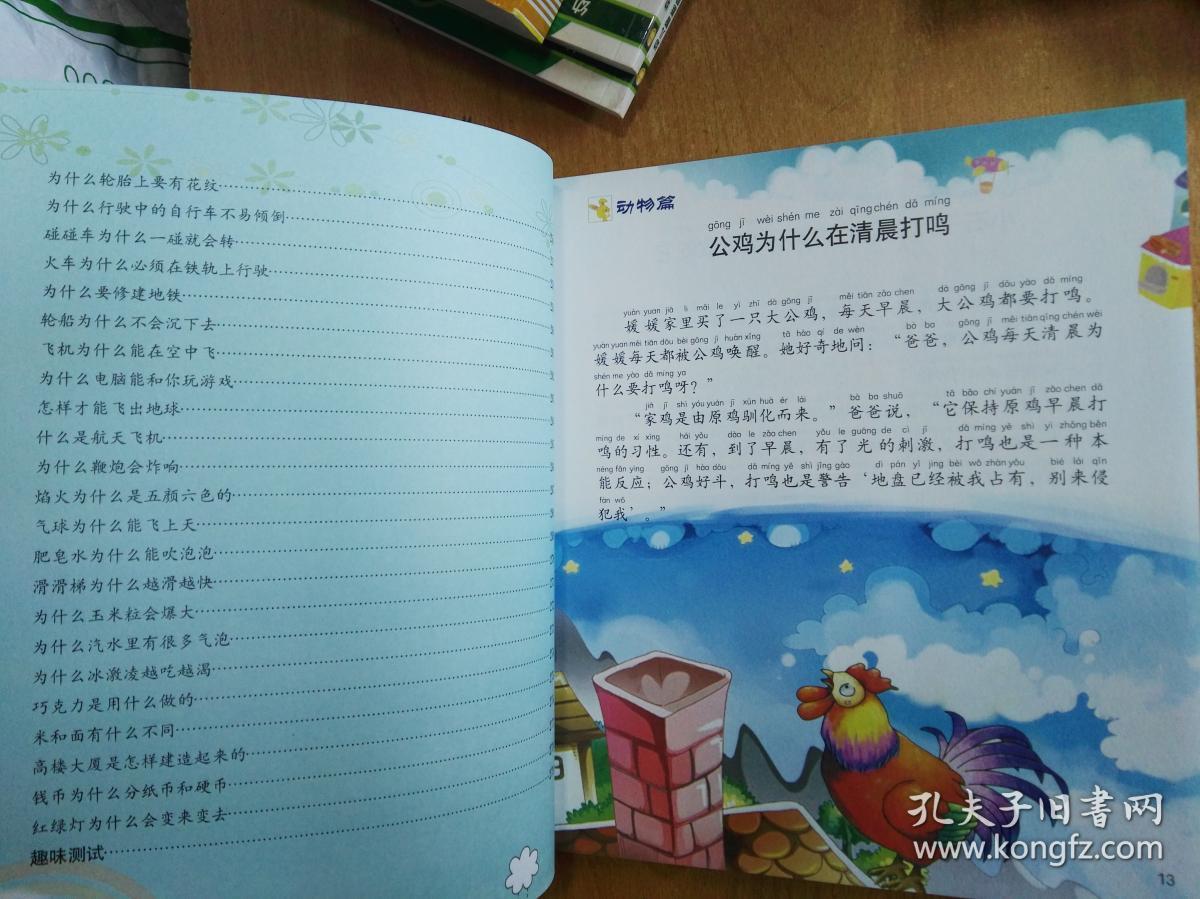 幼
为什么轮胎上要有花纹
为什么行驶中的自行车不易倾倒
碰碰车为什么一碰就会转
火车为什么必须在铁轨上行驶
为什么要修建地铁
轮船为什么不会沉下去
飞机为什么能在空中飞
为什么电脑能和你玩游戏
怎样才能飞出地球
什么是航天飞机
为什么鞭炮会炸响
焰火为什么是五颜六色的
气球为什么能飞上天
肥皂水为什么能吹泡泡
滑滑梯为什么越滑越快
为什么玉米粒会爆大
为什么汽水里有很多气泡
为什么冰激凌越吃越渴
巧克力是用什么做的
米和面有什么不同
高楼大厦是怎样建造起来的
钱币为什么分纸币和硬币
红绿灯为什么会变来变去
趣味测试
动物篇
gōng jī wèi shén me zài qīng chén dǎ míng
公鸡为什么在清晨打鸣
yuàn yuan jiā li mǎi le yì zhī dà gōng jī měi tiān zǎo chen dà gōng jī dōu yào dǎ míng
媛媛家里买了一只大公鸡，每天早晨，大公鸡都要打鸣。
yuàn yuan měi tiān dōu bèi gōng jī huàn xǐng tā hào qí de wèn bà ba gōng jī měi tiān qīng chén wèi
媛媛每天都被公鸡唤醒。她好奇地问：“爸爸，公鸡每天清晨为
shén me yào dǎ míng ya
什么要打鸣呀？”
jiā jī shì yóu yuán jī xùn huà ér lái bà ba shuō tā bǎo chí yuán jī zǎo chen dǎ
“家鸡是由原鸡驯化而来。”爸爸说，“它保持原鸡早晨打
míng de xí xìng hái yǒu dào le zǎo chen yǒu le guāng de cì jī dǎ míng yě shì yì zhǒng běn
鸣的习性。还有，到了早晨，有了光的刺激，打鸣也是一种本
néng fǎn yìng gōng jī hào dòu dǎ míng yě shì jǐng gào dì pán yǐ jīng bèi wǒ zhàn yǒu bié lái qīn
能反应；公鸡好斗，打鸣也是警告‘地盘已经被我占有，别来侵
fàn wǒ
犯我’。”
孔夫子旧书网
www.kongfz.com
13